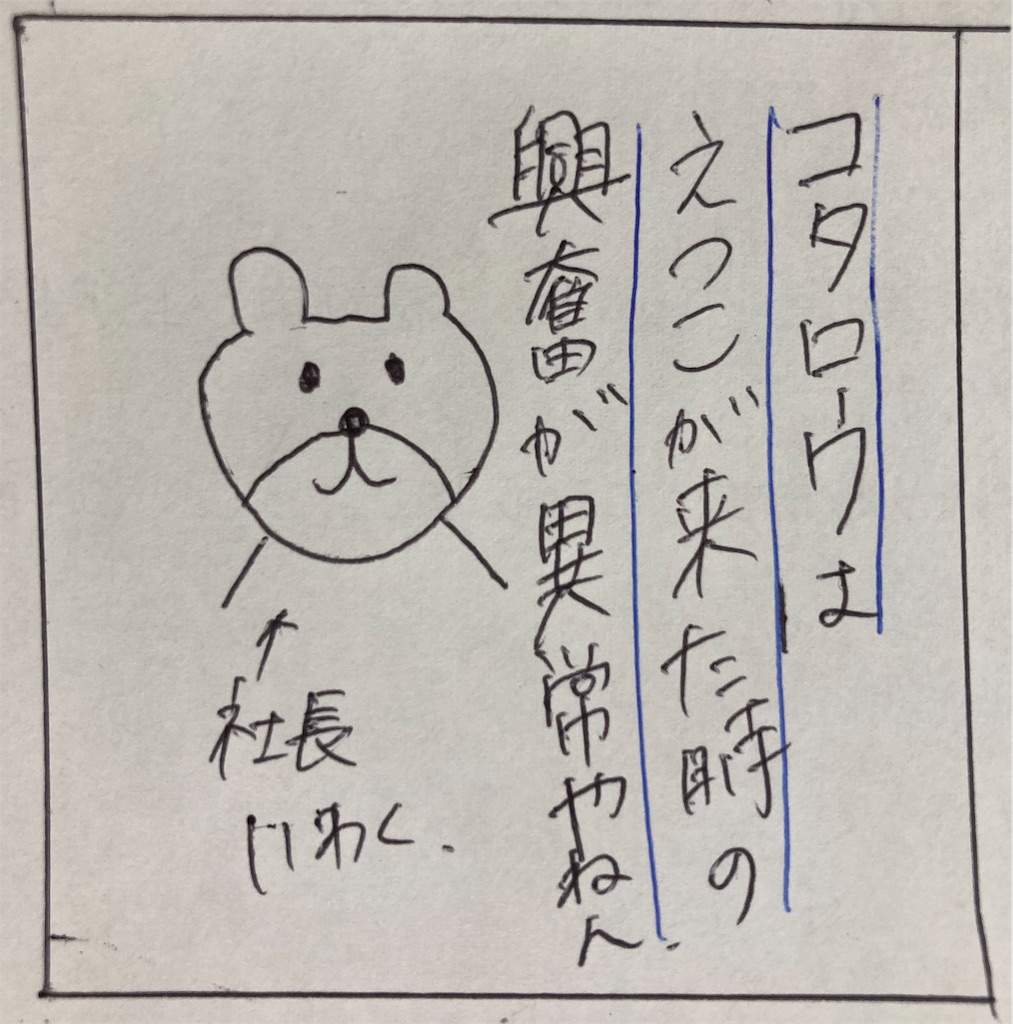 コタローウは
えつこが来た時の
興奮が異常やねん.
↑
社長
いわく.